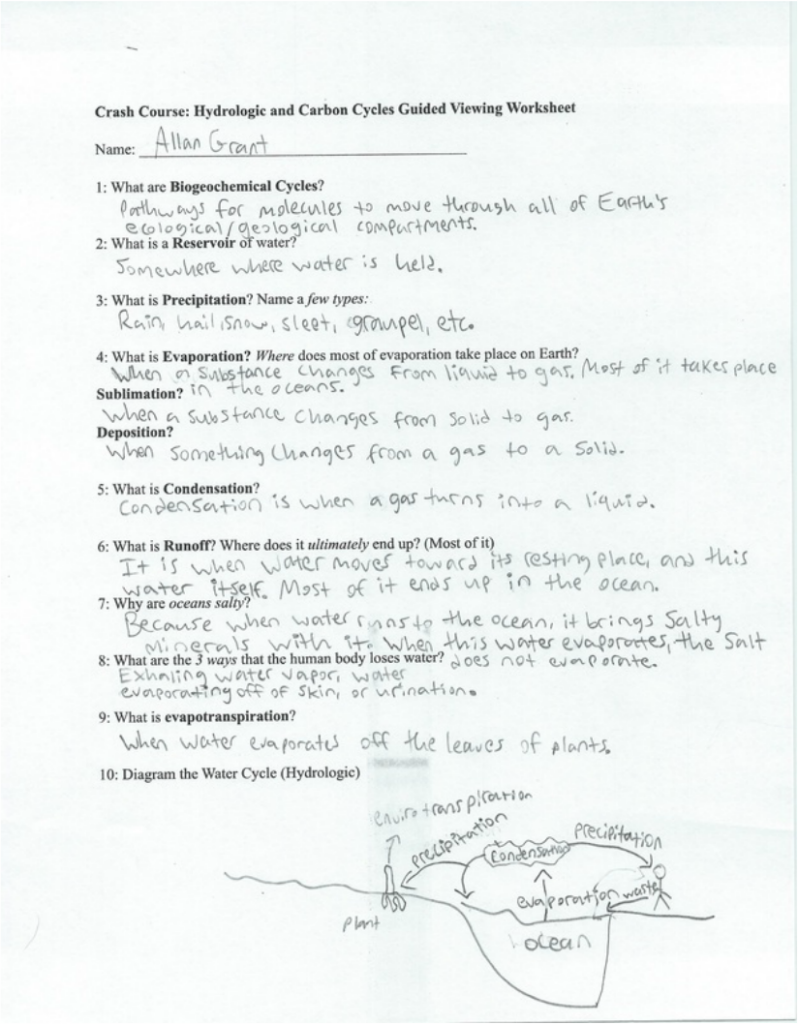 Crash Course: Hydrologic and Carbon Cycles Guided Viewing Worksheet
Name: Allan Grant
1: What are Biogeochemical Cycles?
Pathways for molecules to move through all of Earth's
ecological/geological compartments.
2: What is a Reservoir of water?
Somewhere where water is held.
3: What is Precipitation? Name a few types:
Rain, hail, snow, sleet, graupel, etc.
4: What is Evaporation? Where does most of evaporation take place on Earth?
When a substance changes from liquid to gas. Most of it takes place
Sublimation? in the oceans.
When a substance changes from solid to gas.
Deposition?
When something changes from a gas to a solid.
5: What is Condensation?
Condensation is when a gas turns into a liquid.
6: What is Runoff? Where does it ultimately end up? (Most of it)
It is when water moves toward its resting place, and this
water itself. Most of it ends up in the ocean.
7: Why are oceans salty?
Because when water runs to the ocean, it brings salty
minerals with it. When this water evaporates, the salt
8: What are the 3 ways that the human body loses water? does not evaporate.
Exhaling water vapor, water
evaporating off of skin, or urination.
9: What is evapotranspiration?
When water evaporates off the leaves of plants.
10: Diagram the Water Cycle (Hydrologic)
envirotranspiration
precipitation
precipitation
Condensation
evaporation
waste
plant
ocean